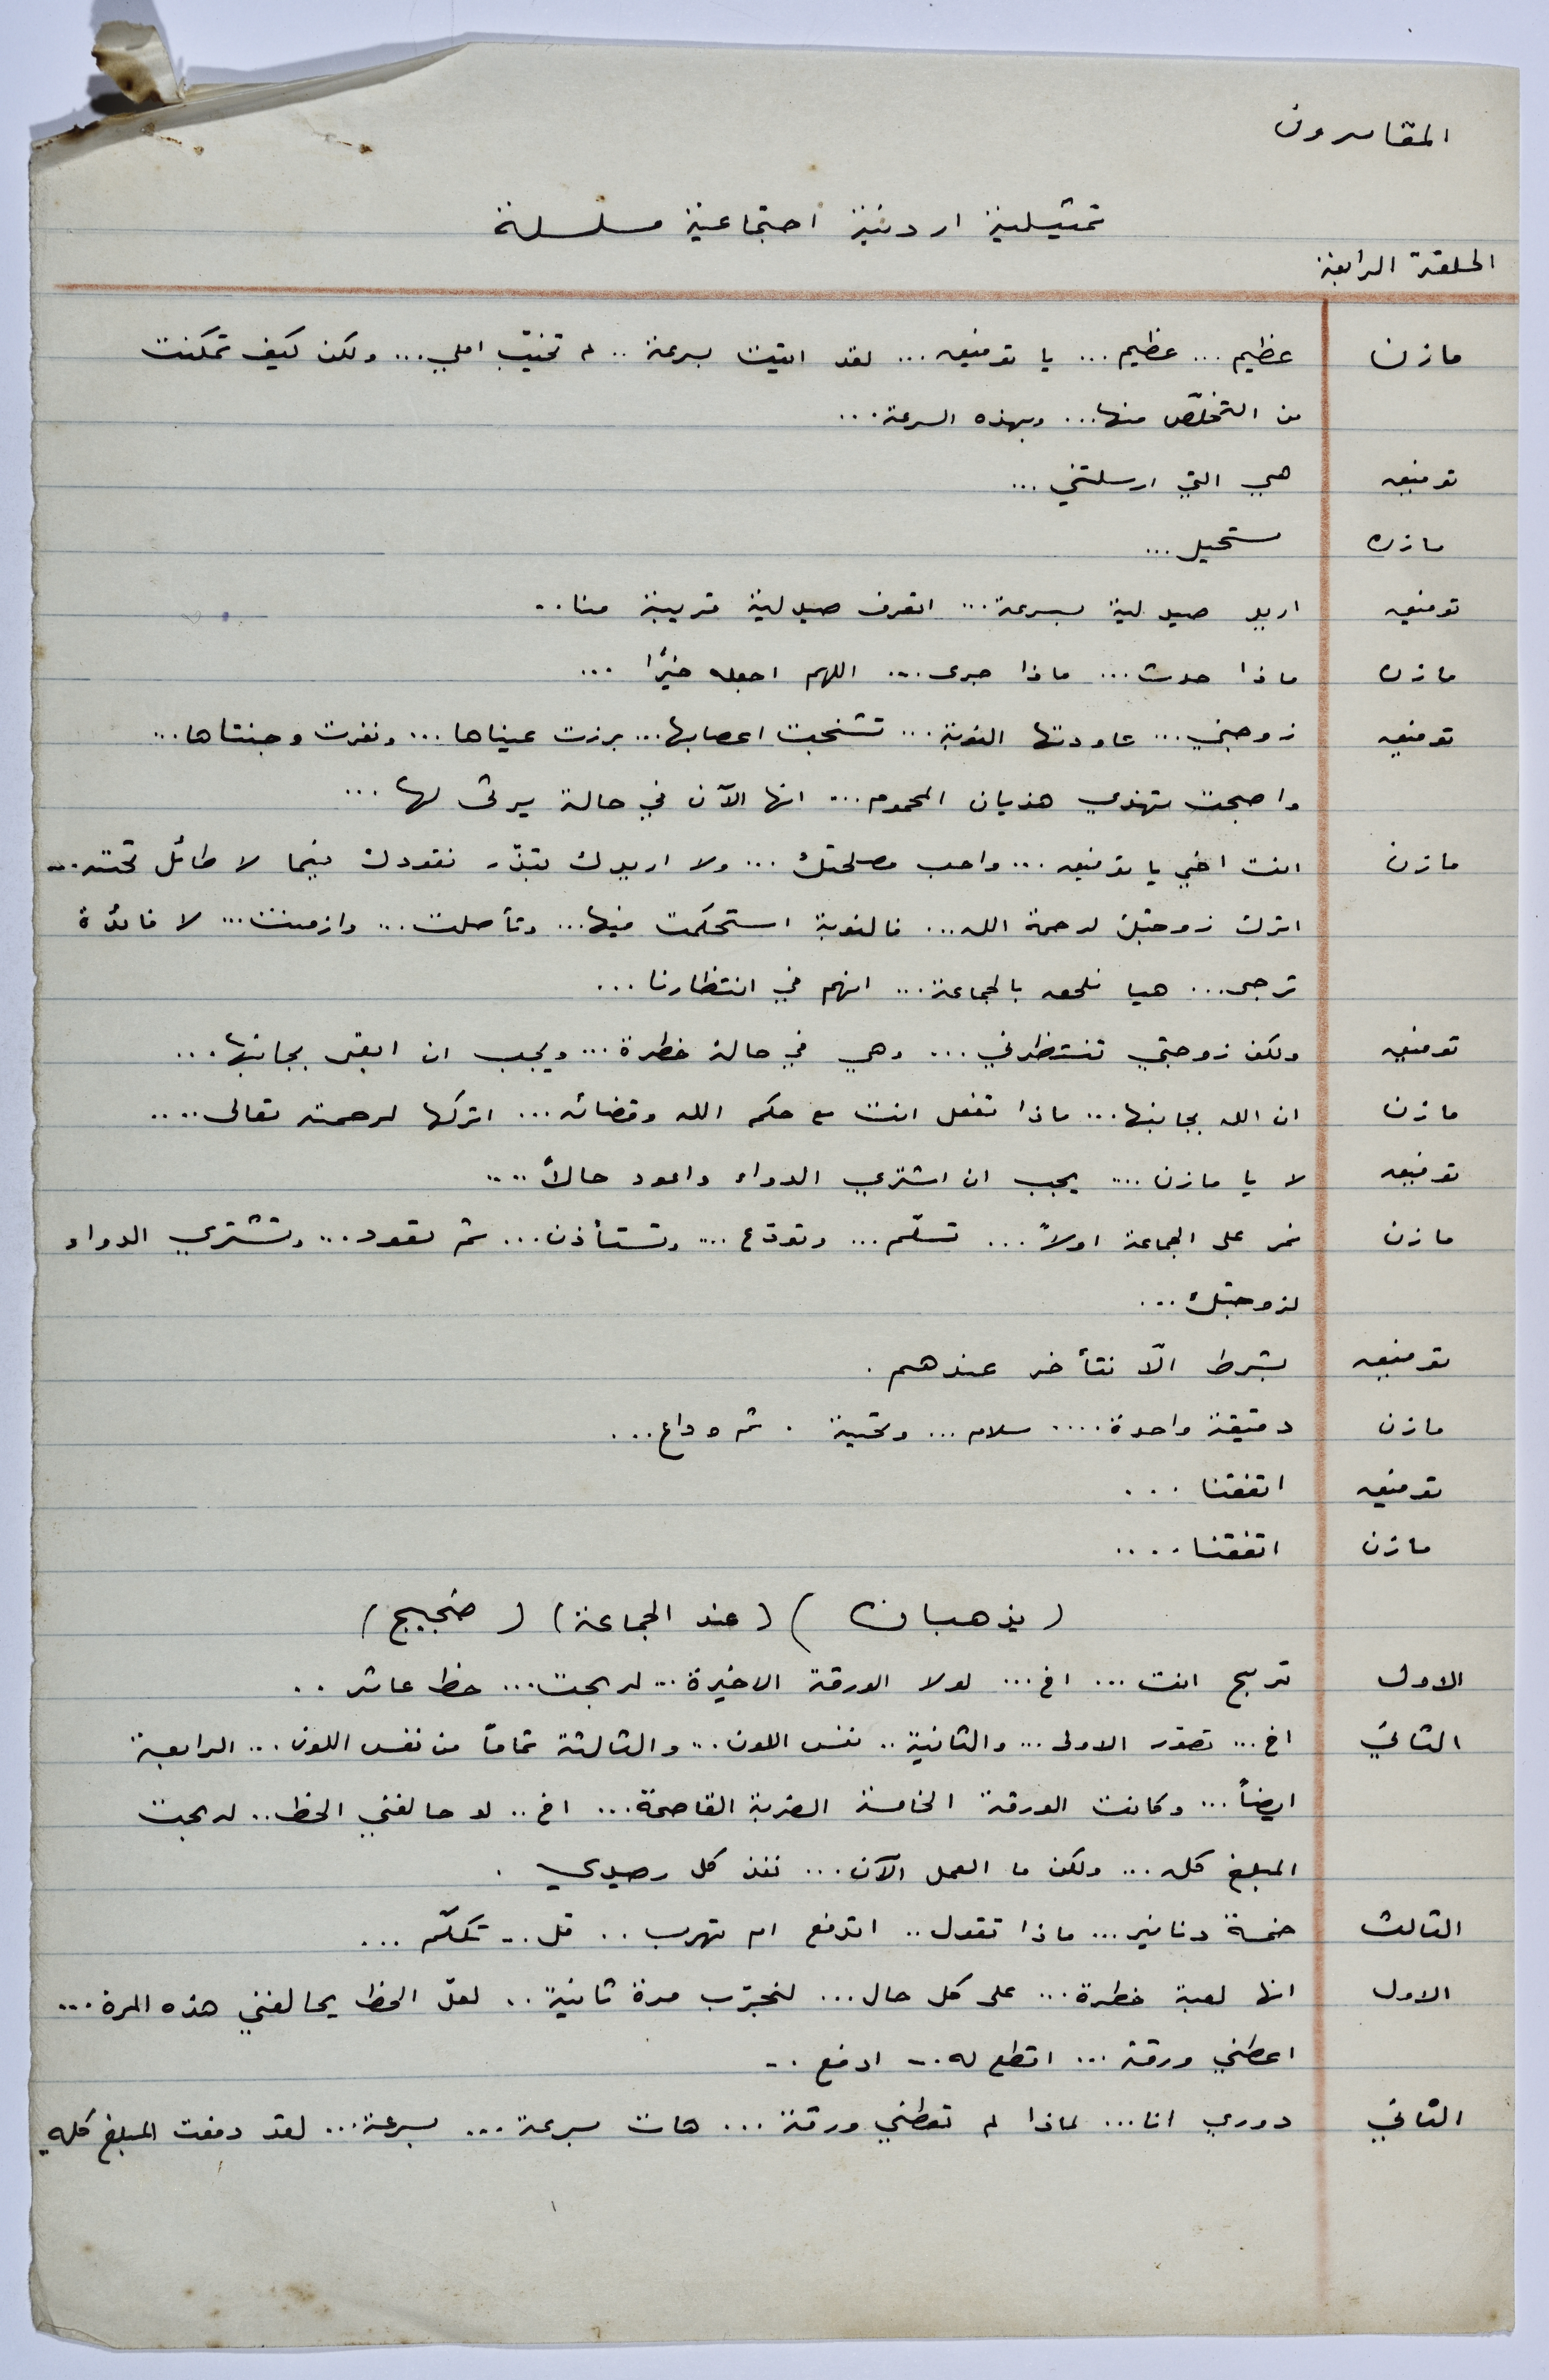 المقامرون
تمثيلية اردنية اجتماعية مسلسلة
الحلقة الرابعة
مازن عظيم ... عظيم ... يا توفيق ... لقد اتيت بسرعة .. لم تخيّب املي ... ولكن كيف تمكنت
من التخلّص منها ... وبهذه السرعة ...
توفيق هي التي ارسلتني ...
مازن مستحيل ...
توفيق اريد صيدلية بسرعة ... اتعرف صيدلية قريبة منا ..
مازن ماذا حدث ... ماذا جرى ... اللهم اجعله خيرًا ...
توفيق زوجتي ... عاودتها النوبة ... تشنجت اعصابها ... برزت عيناها ... ونفرت وجنتاها ...
واصبحت تهذي هذيان المحموم ... انها الآن في حالة يرثى لها ...
مازن انت اخي يا توفيق ... واحب مصلحتك ... ولا اريدك تبذّر نقودك فيما لا طائل تحته ...
اترك زوجتك لرحمة الله ... فالنوبة استحكمت فيها ... وتأصلت ... وازمنت ... لا فائدة
ترجى ... هيا نلحق بالجماعة ... انهم في انتظارنا ...
توفيق ولكن زوجتي تنتظرني ... وهي في حالة خطرة ... ويجب ان ابقى بجانبها ...
مازن ان الله بجانبها ... ماذا تفعل انت مع حكم الله وقضائه ... اتركها لرحمته تعالى ....
توفيق لا يا مازن .... يجب ان اشتري الدواء واعود حالاً ....
مازن نمر على الجماعة اولاً ... تسلّم ... وتودّع .... وتستأذن ... ثم تعود ... وتشتري الدواء
لزوجتك ...
توفيق بشرط الّا نتأخر عندهم .
مازن دقيقة واحدة .... سلام ... وتحية . ثم وداع ...
توفيق اتفقنا ...
مازن اتفقنا ....
( يذهبان ) ( عند الجماعة ) ( ضجيج )
الاول تربح انت ... اخ ... لولا الورقة الاخيرة ... لربحت ... حظ عاثر ..
الثاني اخ ... تصوّر الاولى ... والثانية .. نفس اللون ... والثالثة تماماً من نفس اللون ... الرابعة
ايضاً ... وكانت الورقة الخامسة الضربة القاصمة ... اخ .. لو حالفني الحظ .. لربحت
المبلغ كله ... ولكن ما العمل الآن ... نفذ كل رصيدي .
الثالث خمسة دنانير ... ماذا تقول .. اتدفع ام تهرب .. قل .. تكلّم ...
الاول انها لعبة خطرة ... على كل حال ... لنجرّب مرة ثانية .. لعلّ الحظ يحالفني هذه المرة ...
اعطني ورقة ... اقطع له .. ادفع ..
الثاني دوري انا ... لماذا لم تعطني ورقة ... هات بسرعة ... بسرعة ... لقد دفعت المبلغ كله